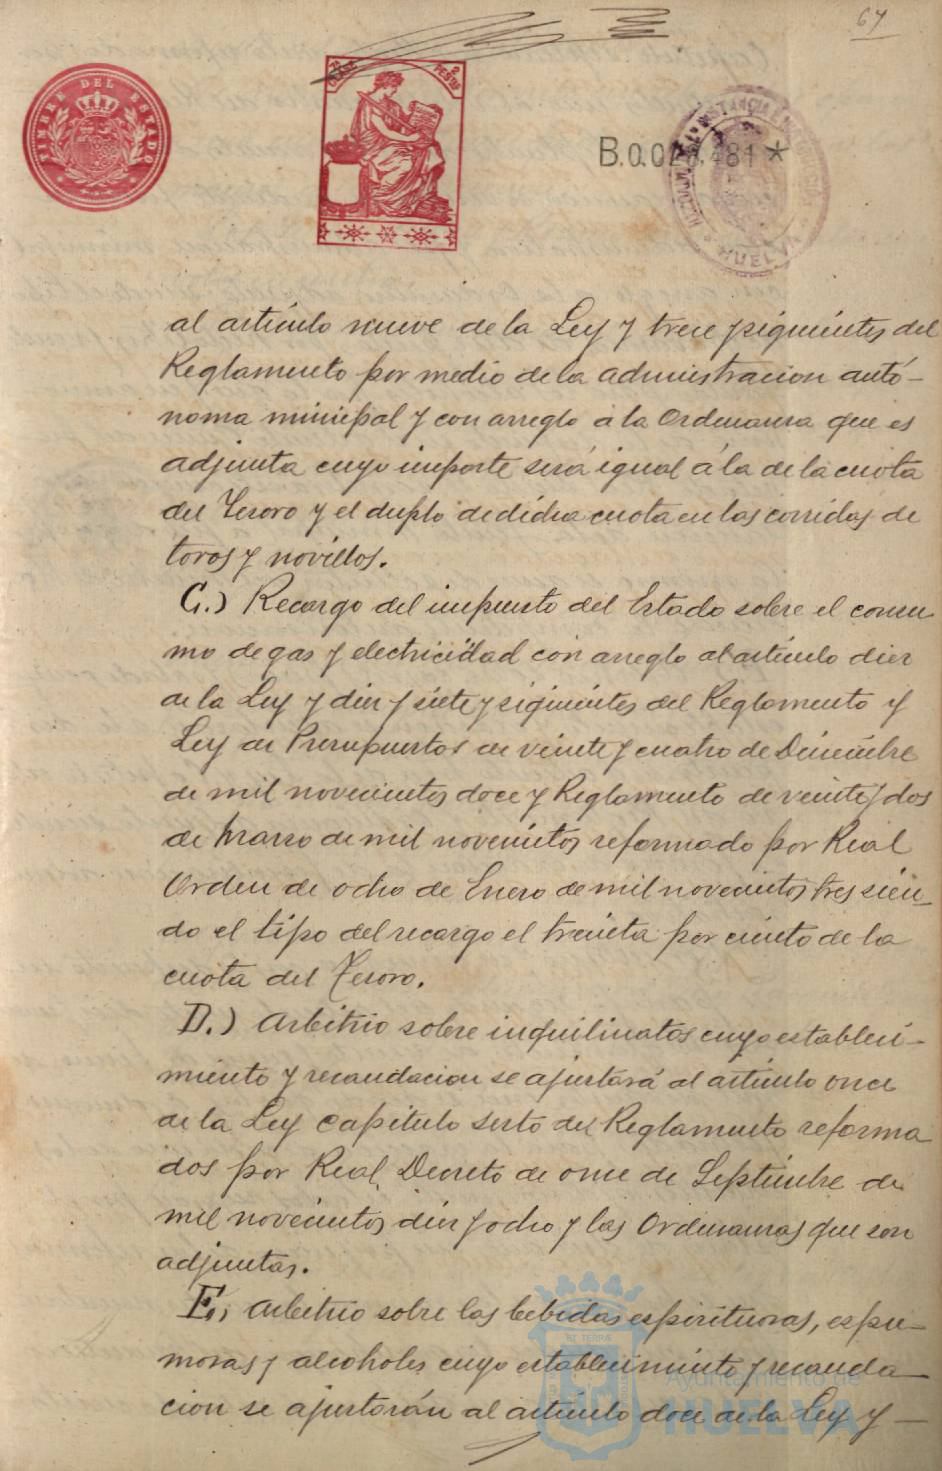 67
TIMBRE DEL ESTADO
CLASE 8ª
2 PESETAS
HUELVA
al artículo nueve de la Ley y trece y siguientes del
Reglamento por medio de la administracion autó-
noma municipal y con arreglo a la Ordenanza que es
adjunta cuyo importe será igual á la de la cuota
del Tesoro y el duplo de dicha cuota en las corridas de
toros y novillos.
C.) Recargo del impuesto del Estado sobre el consu
mo de gas y electricidad con arreglo al artículo diez
de la Ley y diez y siete y siguientes del Reglamento y
Ley de Presupuestos de veinte y cuatro de Diciembre
de mil novecientos doce y Reglamento de veinte y dos
de Marzo de mil novecientos reformado por Real
Orden de ocho de Enero de mil novecientos tres sien-
do el tipo del recargo el treinta por ciento de la
cuota del Tesoro.
D.) Arbitrio sobre inquilinatos cuyo estableci-
miento y recaudacion se ajustará al artículo once
de la Ley Capitulo sesto del Reglamento reforma
dos por Real Decreto de once de Septiembre de
mil novecientos diez y ocho y las Ordenanzas que son
adjuntas.
E.) Arbitrio sobre las bebidas espirituosas, espu-
mosas y alcoholes cuyo establecimiento y recauda-
cion se ajustarán al artículo doce de la Ley y —
Ayuntamiento de
HUELVA